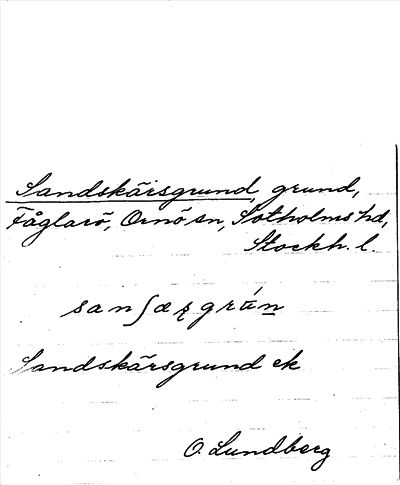 Sandskärsgrund, grund,
Fåglarö, Ornö sn, Sotholms hd,
Stockh. l.
sanʃæʂgrún
Sandskärsgrund ek
O. Lundberg